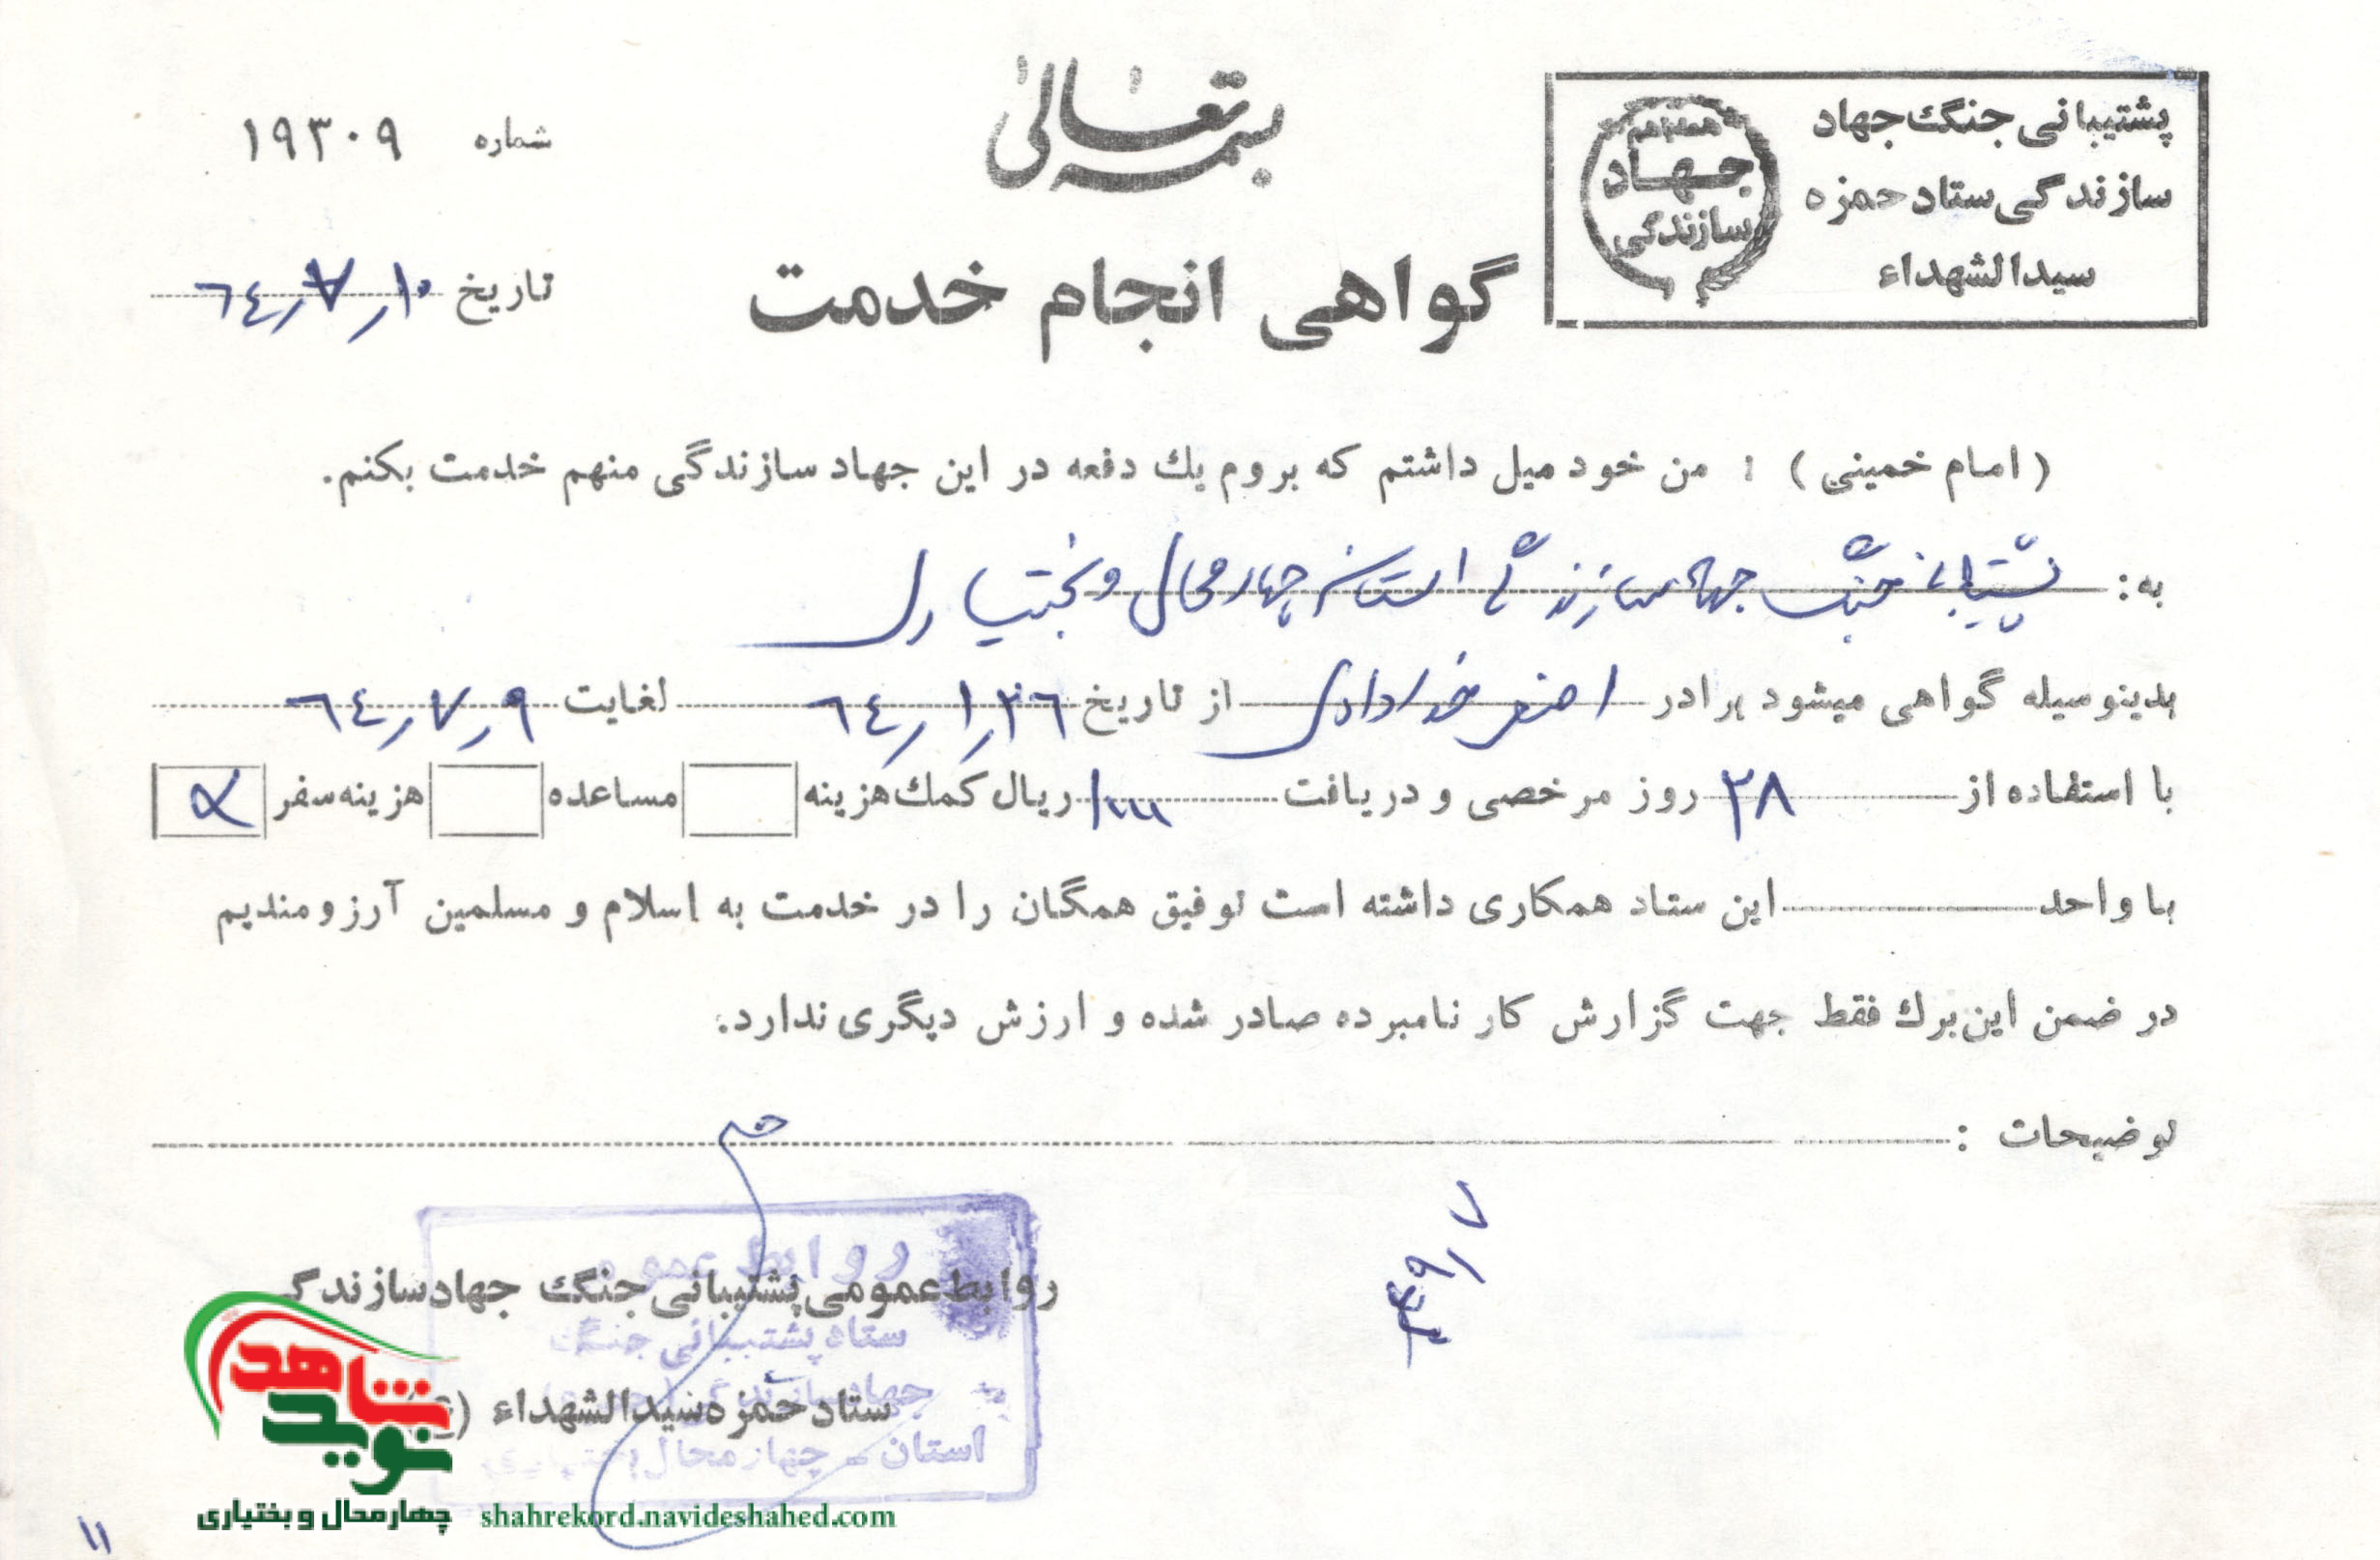 بسمه تعالی
پشتیبانی جنگ جهاد
سازندگی ستاد حمزه
سیدالشهداء
همه با هم
جهاد
سازندگی
شماره ۱۹۳۰۹
تاریخ ۶٤/۷/۱۰
گواهی انجام خدمت
(امام خمینی) : من خود میل داشتم که بروم یك دفعه در این جهاد سازندگی منهم خدمت بکنم.
به: پشتیبانی جنگ جهاد سازندگی استان چهارمحال و بختیاری
بدینوسیله گواهی میشود برادر اصغر خدادادی از تاریخ ۶٤/۱/۲۶ لغایت ۶٤/۷/۹
با استفاده از ۲۸ روز مرخصی و دریافت ریال کمك هزینه مساعده هزینه سفر
با واحد این ستاد همکاری داشته است توفیق همگان را در خدمت به اسلام و مسلمین آرزومندیم
در ضمن این برك فقط جهت گزارش کار نامبرده صادر شده و ارزش دیگری ندارد.
توضیحات :
روابط عمومی پشتیبانی جنگ جهاد سازندگی
ستاد حمزه سیدالشهداء (ع)
روابط عمومی
ستاد پشتیبانی جنگ
جهاد سازندگی
استان چهارمحال بختیاری
نوید شاهد
چهارمحال و بختیاری
shahrekord.navideshahed.com
۱۱